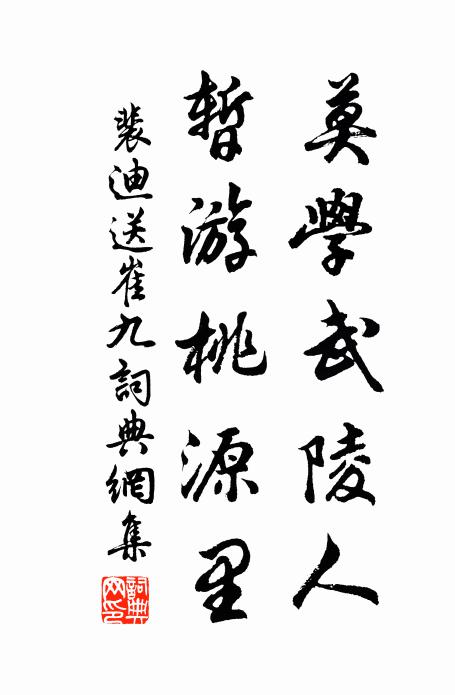 莫學武陵人
暫游桃源里
裴迪送崔九詞典網集
詞典網印